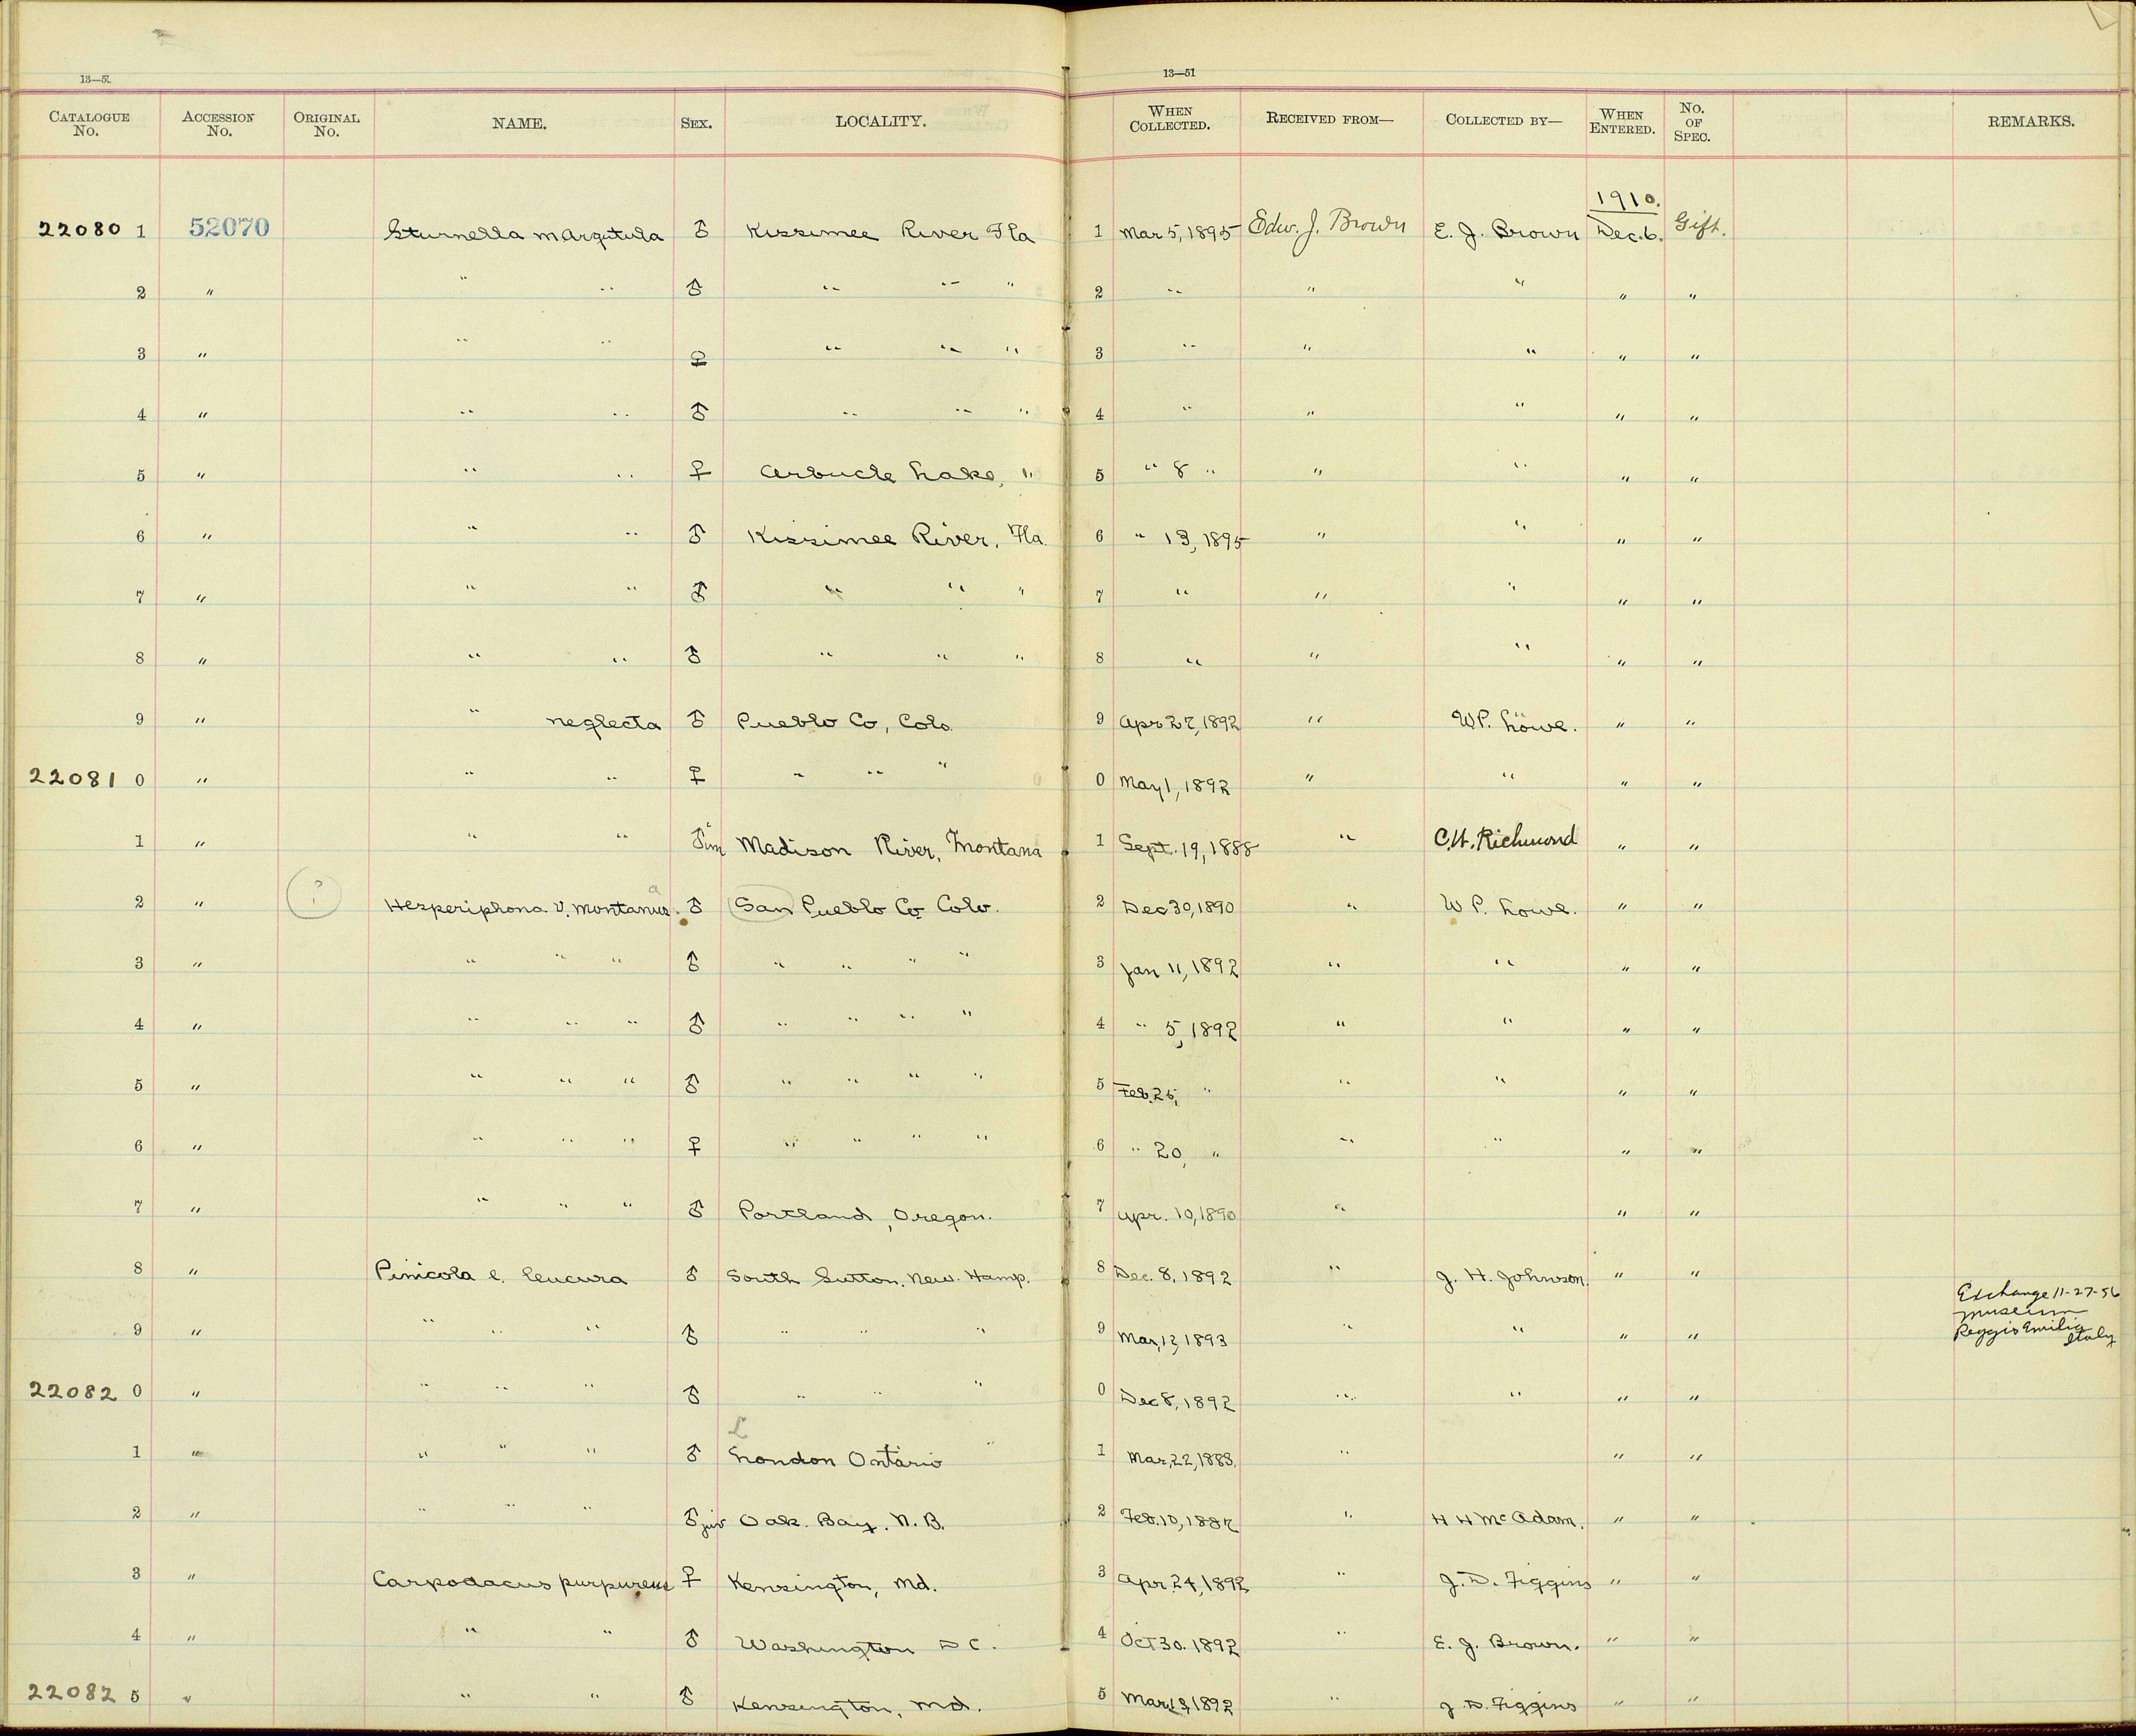 13—51
13—51
CATALOGUE No. ACCESSION No. ORIGINAL No. NAME. SEX. LOCALITY. WHEN COLLECTED. RECEIVED FROM— COLLECTED BY— WHEN ENTERED. No. OF SPEC. REMARKS.
1910.
22080 1 52070 Sturnella m argutula ♂ Kissimee River Fla 1 Mar 5, 1895 Edw. J. Brown E. J. Brown Dec. 6. Gift.
2 " " " ♂ " " " 2 " " " " "
3 " " " ♀ " " " 3 " " " " "
4 " " " ♂ " " " 4 " " " " "
5 " " " ♀ Arbucle Lake, " 5 " 8 " " " " "
6 " " " ♂ Kissimee River, Fla. 6 " 13, 1895 " " " "
7 " " " ♂ " " " 7 " " " " "
8 " " " ♂ " " " 8 " " " " "
9 " " neglecta ♂ Pueblo Co, Colo. 9 Apr 27, 1892 " W.P. Löwe. " "
22081 0 " " " ♀ " " " 0 May 1, 1892 " " " "
1 " " " ♂ im Madison River, Montana 1 Sept. 19, 1888 " C.W. Richmond " "
2 " ? Hesperiphona v. montanus a ♂ San Pueblo Co Colo. 2 Dec 30, 1890 " W P. Lowe. " "
3 " " " " ♂ " " " " 3 Jan 11, 1892 " " " "
4 " " " " ♂ " " " " 4 " 5, 1892 " " " "
5 " " " " ♂ " " " " 5 Feb. 25, " " " " "
6 " " " " ♀ " " " " 6 " 20, " " " " "
7 " " " " ♂ Portland, Oregon. 7 Apr. 10, 1890 " " "
8 " Pinicola e. leucura ♂ South Sutton, New. Hamp. 8 Dec. 8, 1892 " J. H. Johnson. " "
Exchange 11-27-56
museum
Reggio Emilia
Italy
9 " " " " ♂ " " " 9 Mar, 12, 1893 " " " "
22082 0 " " " " ♂ " " " 0 Dec 8, 1892 " " " "
L
1 " " " " ♂ London Ontario " 1 Mar, 22, 1883. " " "
2 " " " " ♂ juv Oak. Bay. N. B. 2 Feb. 10, 1887 " H H McAdam. " "
3 " Carpodacus purpureus ♀ Kensington, Md. 3 Apr 24, 1892 " J. D. Figgins " "
4 " " " ♂ Washington D C. 4 Oct 30. 1892 " E. J. Brown. " "
22082 5 " " " ♂ Kensington, Md. 5 Mar, 13, 1892 " J. D. Figgins " "